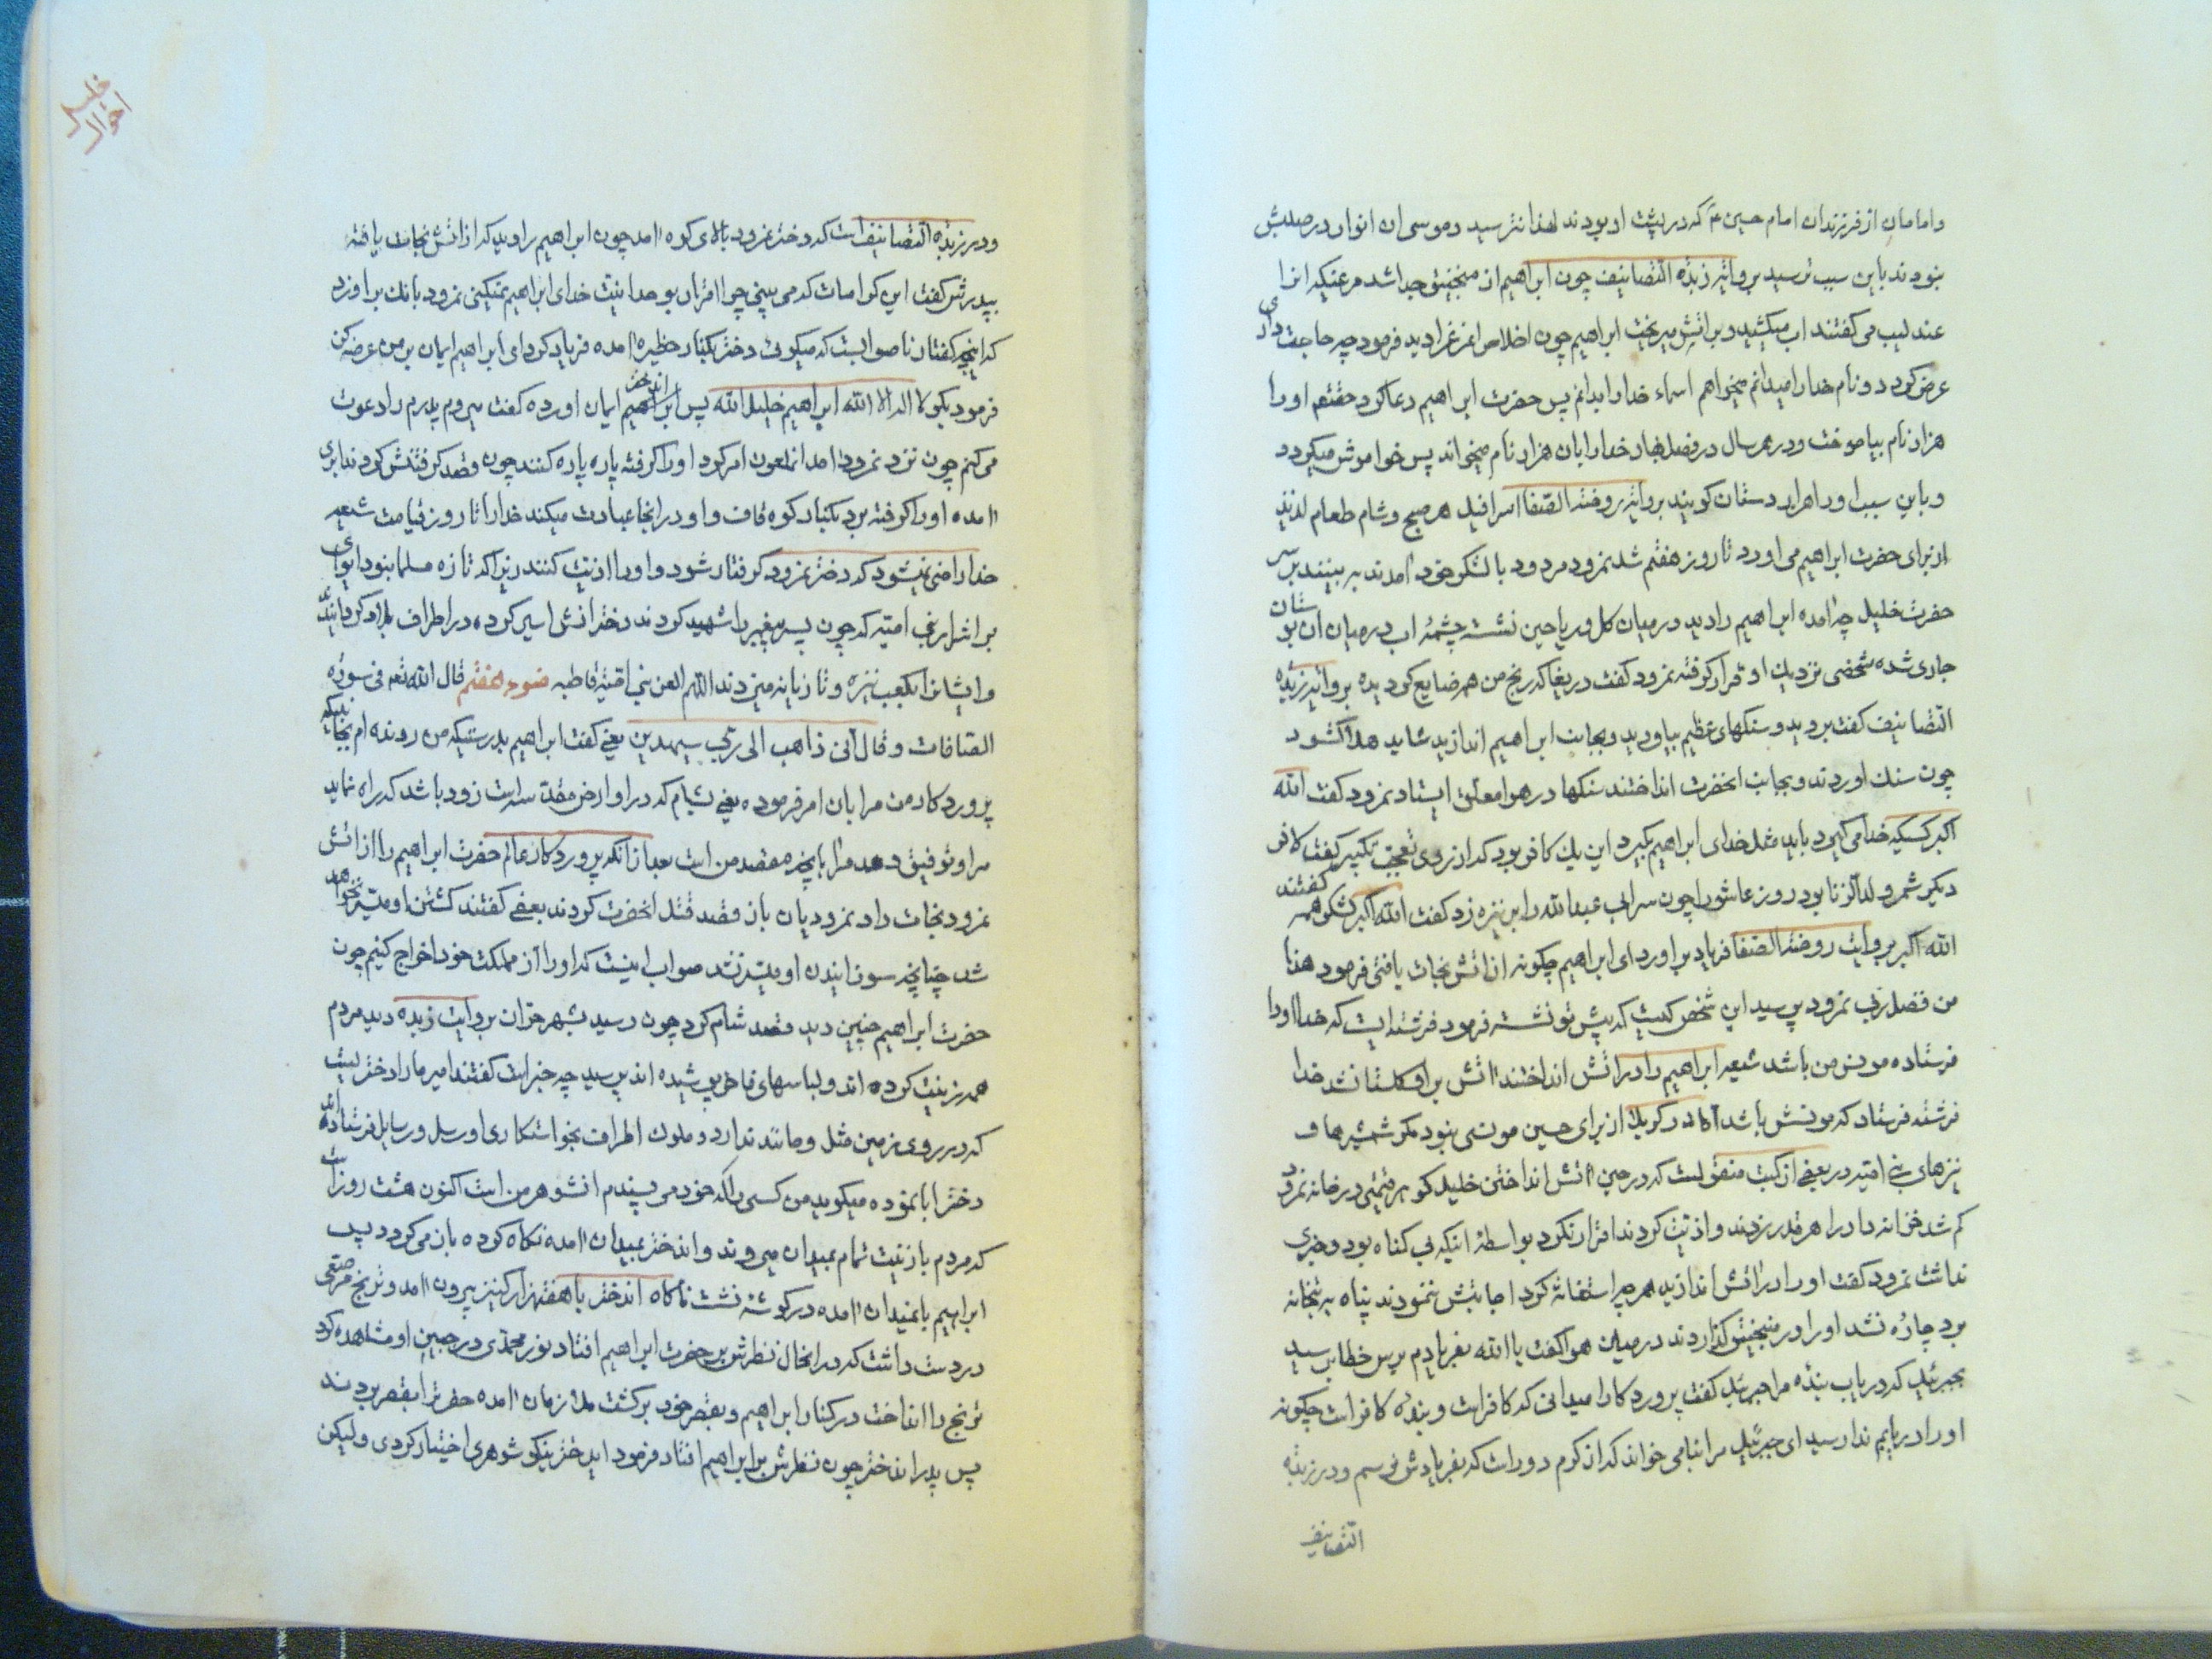 وامامان از فرزندان امام حسین ع که در پشت او بودند لهذا نترسید و موسی ان انوار در صلبش
نبودند باین سبب ترسید بروایة زبدة التصانیف چون ابراهیم از منجنیق جدا شد مرغیکه انرا
عندلیب می گفتند اب میکشید و بر اتش میریخت ابراهیم چون اخلاص انمرغرا دید فرمود چه حاجت داری
عرض کرد دو نام خدا را میدانم میخواهم اسماء خدا را بدانم پس حضرت ابراهیم دعا کرد حقتعم اورا
هزار نام بیاموخت و در هر سال در فصل بهار خدا را بان هزار نام میخواند پس خواموش میکردد
و باین سبب اورا هزار دستان کویند بروایة روضة الصفا اسرافیل هر صبح و شام طعام لذیذ
از برای حضرت ابراهیم می اورد تا روز هفتم شد نمرود مردود با لشکر خود امدند به بینند بر سر
حضرت خلیل چه امده ابراهیم را دید در میان کل و ریاحین نشسته چشمهٔ اب در میان ان بوستان
جاری شده شخصی نزدیك او قرار کرفته نمرود کفت دریغا که رنج من همه ضایع کردید بروایة زبدة
التصانیف کفت بروید و سنکهای عظیم بیاورید و بجانب ابراهیم اندازید شاید هلاک شود
چون سنك اوردند و بجانب انحضرت انداختند سنکها در هوا معلق ایستاد نمرود کفت الله
اکبر کسیکه خدا می کیرد باید مثل خدای ابراهیم بکیرد این یك کافر بود که از روی تعجب تکبیر کفت کافر
دیکر شمر ولد الزنا بود روز عاشورا چون سر ابی عبد الله را بر نیزه زد کفت الله اکبر لشکر همه کفتند
الله اکبر بروایت روضة الصفا فریاد بر اورد ای ابراهیم چکونه از اتش نجات یافتی فرمود هذا
من فضل ربی نمرود پرسید این شخص کیست که پیش تو نشسته فرمود فرشته ایست که خدا اورا
فرستاده مونس من باشد شیعه ابراهیم را در اتش انداختند اتش بر او کلستان شد خدا
فرشته فرستاد که مونسش باشد اما در کربلا از برای حسین مونسی نبود مکر شمشیرها و
نیزهای بنی امیه در بعضی از کتب منقولست که در حین اتش انداختن خلیل کوهر قیمتی در خانه نمرود
کم شد خزانه دار را هر قدر زدند و اذیت کردند اقرار نکرد بواسطهٔ اینکه بی کناه بود و خبری
نداشت نمرود کفت اورا در اتش اندازید هر چه استغاثه کرد اجابتش ننمودند پناه به بتخانه
برد چاره نشد اورا در منجنیق کذاردند در میان هوا کفت یا الله بفریادم برس خطاب رسید
بجبرئیل که دریاب بنده مرا جبرئیل کفت پروردکارا میدانی که کافر است و بنده کافر است چکونه
اورا دریابم ندا رسید ای جبرئیل مرا بنامی خواند که از کرم دور است که بفریادش نرسم و در زبده
التصانیف
و در زبدة التصانیف است که دختر نمرود بالای کوه امد چون ابراهیم را دید که از اتش نجات یافته
بپدرش کفت این کرامات که می بینی چرا اقرار بوحدانیت خدای ابراهیم نمیکنی نمرود بانك بر او زد
که اینچه کفتار ناصوابست که میکوئی دختر بکنار حظیره امده فریاد کرد ای ابراهیم ایمان بر من عرضه کن
فرمود بکو لا اله الا الله ابراهیم خلیل الله پس اندختر ایمان اورده کفت میروم پدرم را دعوت
می کنم چون نزد نمرود امد انملعون امر کرد اورا کرفته پاره پاره کنند چون قصد کرفتنش کردند ابری
امده اورا کرفته برد بکنار کوه قاف و او در انجا عبادت میکند خدا را تا روز قیامت شیعه
خدا راضی نمیشود که دختر نمرود کرفتار شود و اورا اذیت کنند زیرا که تازه مسلمان بود ای وای
بر اشرار بنی امیه که چون پسر پیغمبر را شهید کردند دخترانش اسیر کرده در اطراف بلاد کردانیدند
و ایشانرا بکعب نیزه و تازیانه میزدند اللهم العن بنی امیة قاطبه ضوء هفتم قال الله تعم فی سورة
الصافات وقال انی ذاهب الی ربی سیهدین یعنی کفت ابراهیم بدرستیکه من رونده ام بجائیکه
پروردکار من مرا بان امر فرموده یعنی بشام که در او ارض مقدسه است زود باشد که راه نماید
مرا و توفیق دهد مرا بانچه مقصد من است بعد از انکه پروردکار عالم حضرت ابراهیم را از اتش
نمرود نجات داد نمرودیان باز قصد قتل انحضرت کردند بعضی کفتند کشتن او میسر نخواهد
شد چنانچه سوزانیدن او میسر نشد صواب اینست که اورا از مملکت خود اخراج کنیم چون
حضرت ابراهیم چنین دید قصد شام کرد چون رسید بشهر حران بروایت زبده دید مردم
همه زینت کرده اند و لباسهای فاخر پوشیده اند پرسید چه خبر است کفتند امیر ما را دختریست
که در روی زمین مثل و مانند ندارد و ملوك اطراف بخواستکاری او رسل و رسایل فرستاده اند
دختر ابا نموده میکوید من کسی را که خود می پسندم انشوهر من است اکنون هشت روز است
که مردم با زینت تمام بمیدان میروند و اندختر بمیدان امده نکاه کرده باز می کردد پس
ابراهیم بانمیدان امده در کوشهٔ نشست ناکاه اندختر با هفتهزار کنیز بیرون امد و ترنج مرصعی
در دست داشت که در انحال نظرش بر حضرت ابراهیم افتاد نور محمدی در جبین او مشاهده کرد
ترنج را انداخت در کنار ابراهیم و بقصر خود برکشت ملازمان امده حضرترا بقصر بردند
پس پدر اندختر چون نظرش بر ابراهیم افتاد فرمود ایدختر نیکو شوهری اختیار کردی ولیکن